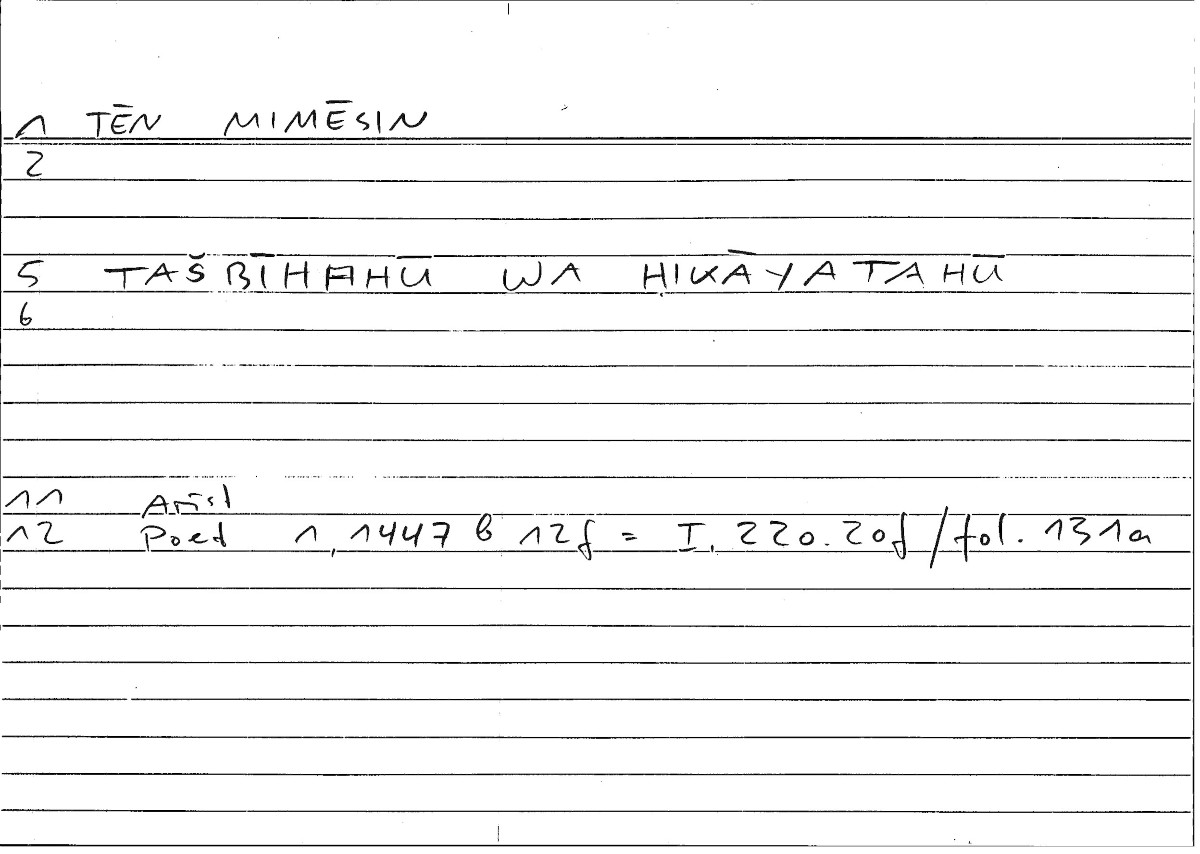 1 TĒN MIMĒSIN
2
5 TAŠBĪHAHŪ WA ḤIKĀYATAHŪ
6
11 Arist
12 Poet 1,1447 b 12f = I, 220.20f/fol. 131a